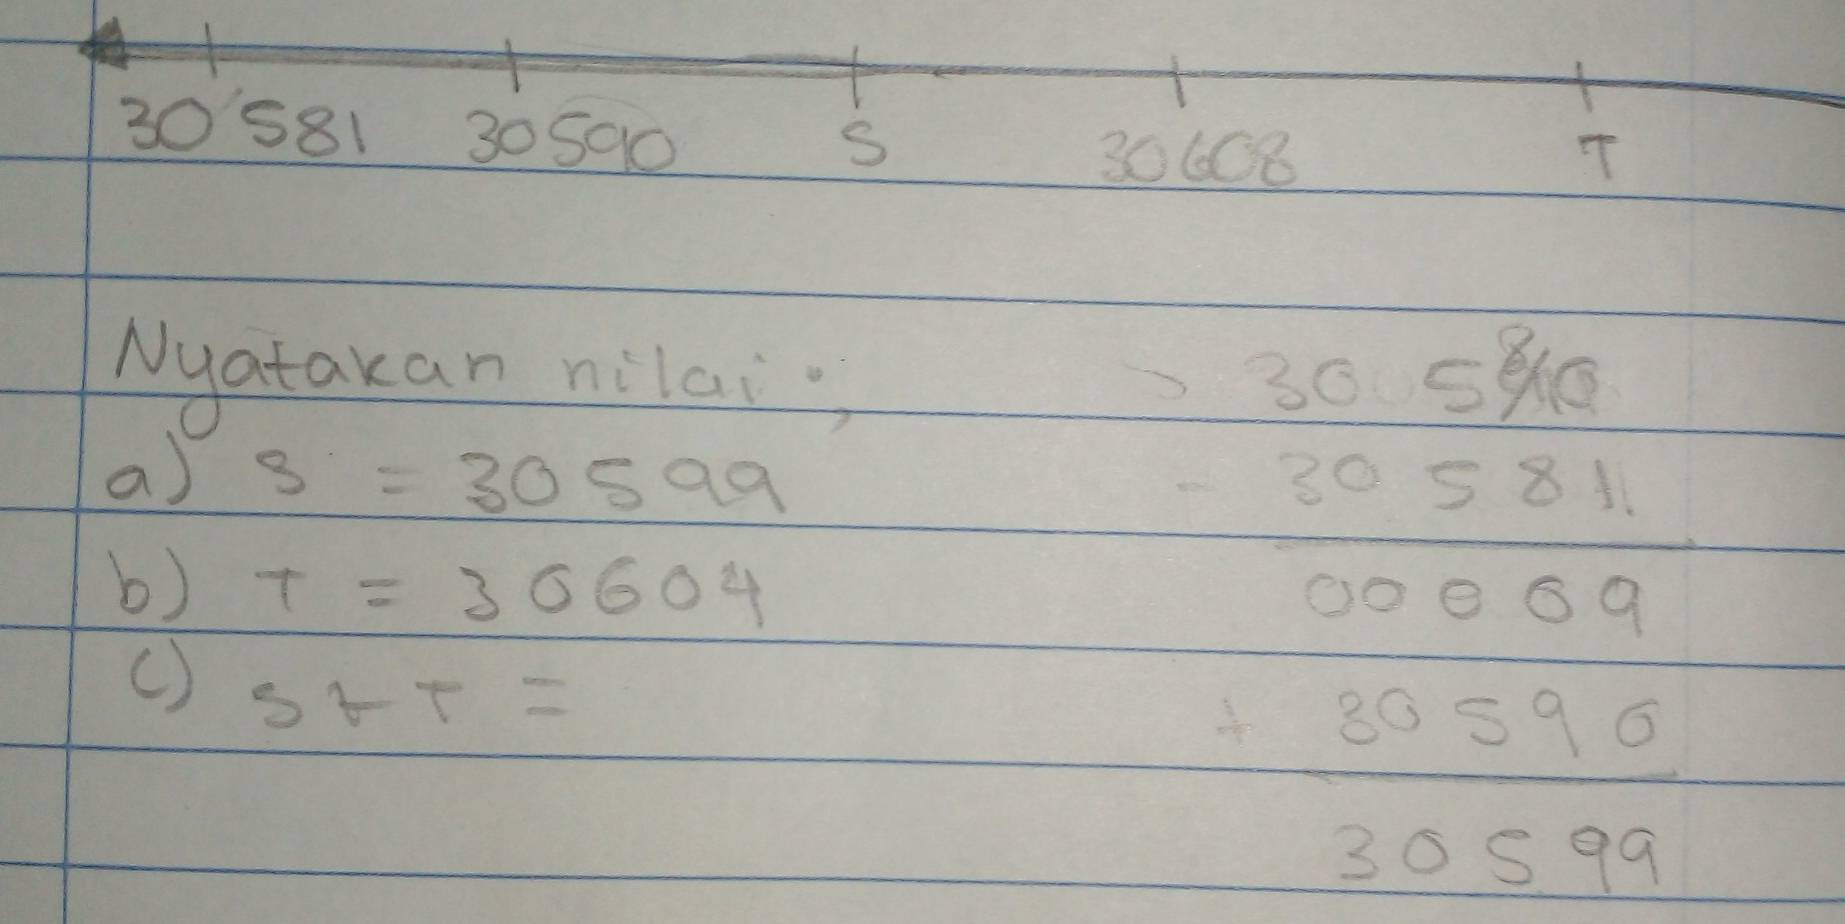 30 581 30590 S 30608 T
Nyatakan nilai :,
a) S = 30 599
b) T = 30604
c) S + T =
30 5 8 10
- 30 5 8 1
00 0 0 9
+ 30 5 9 0
30 5 99